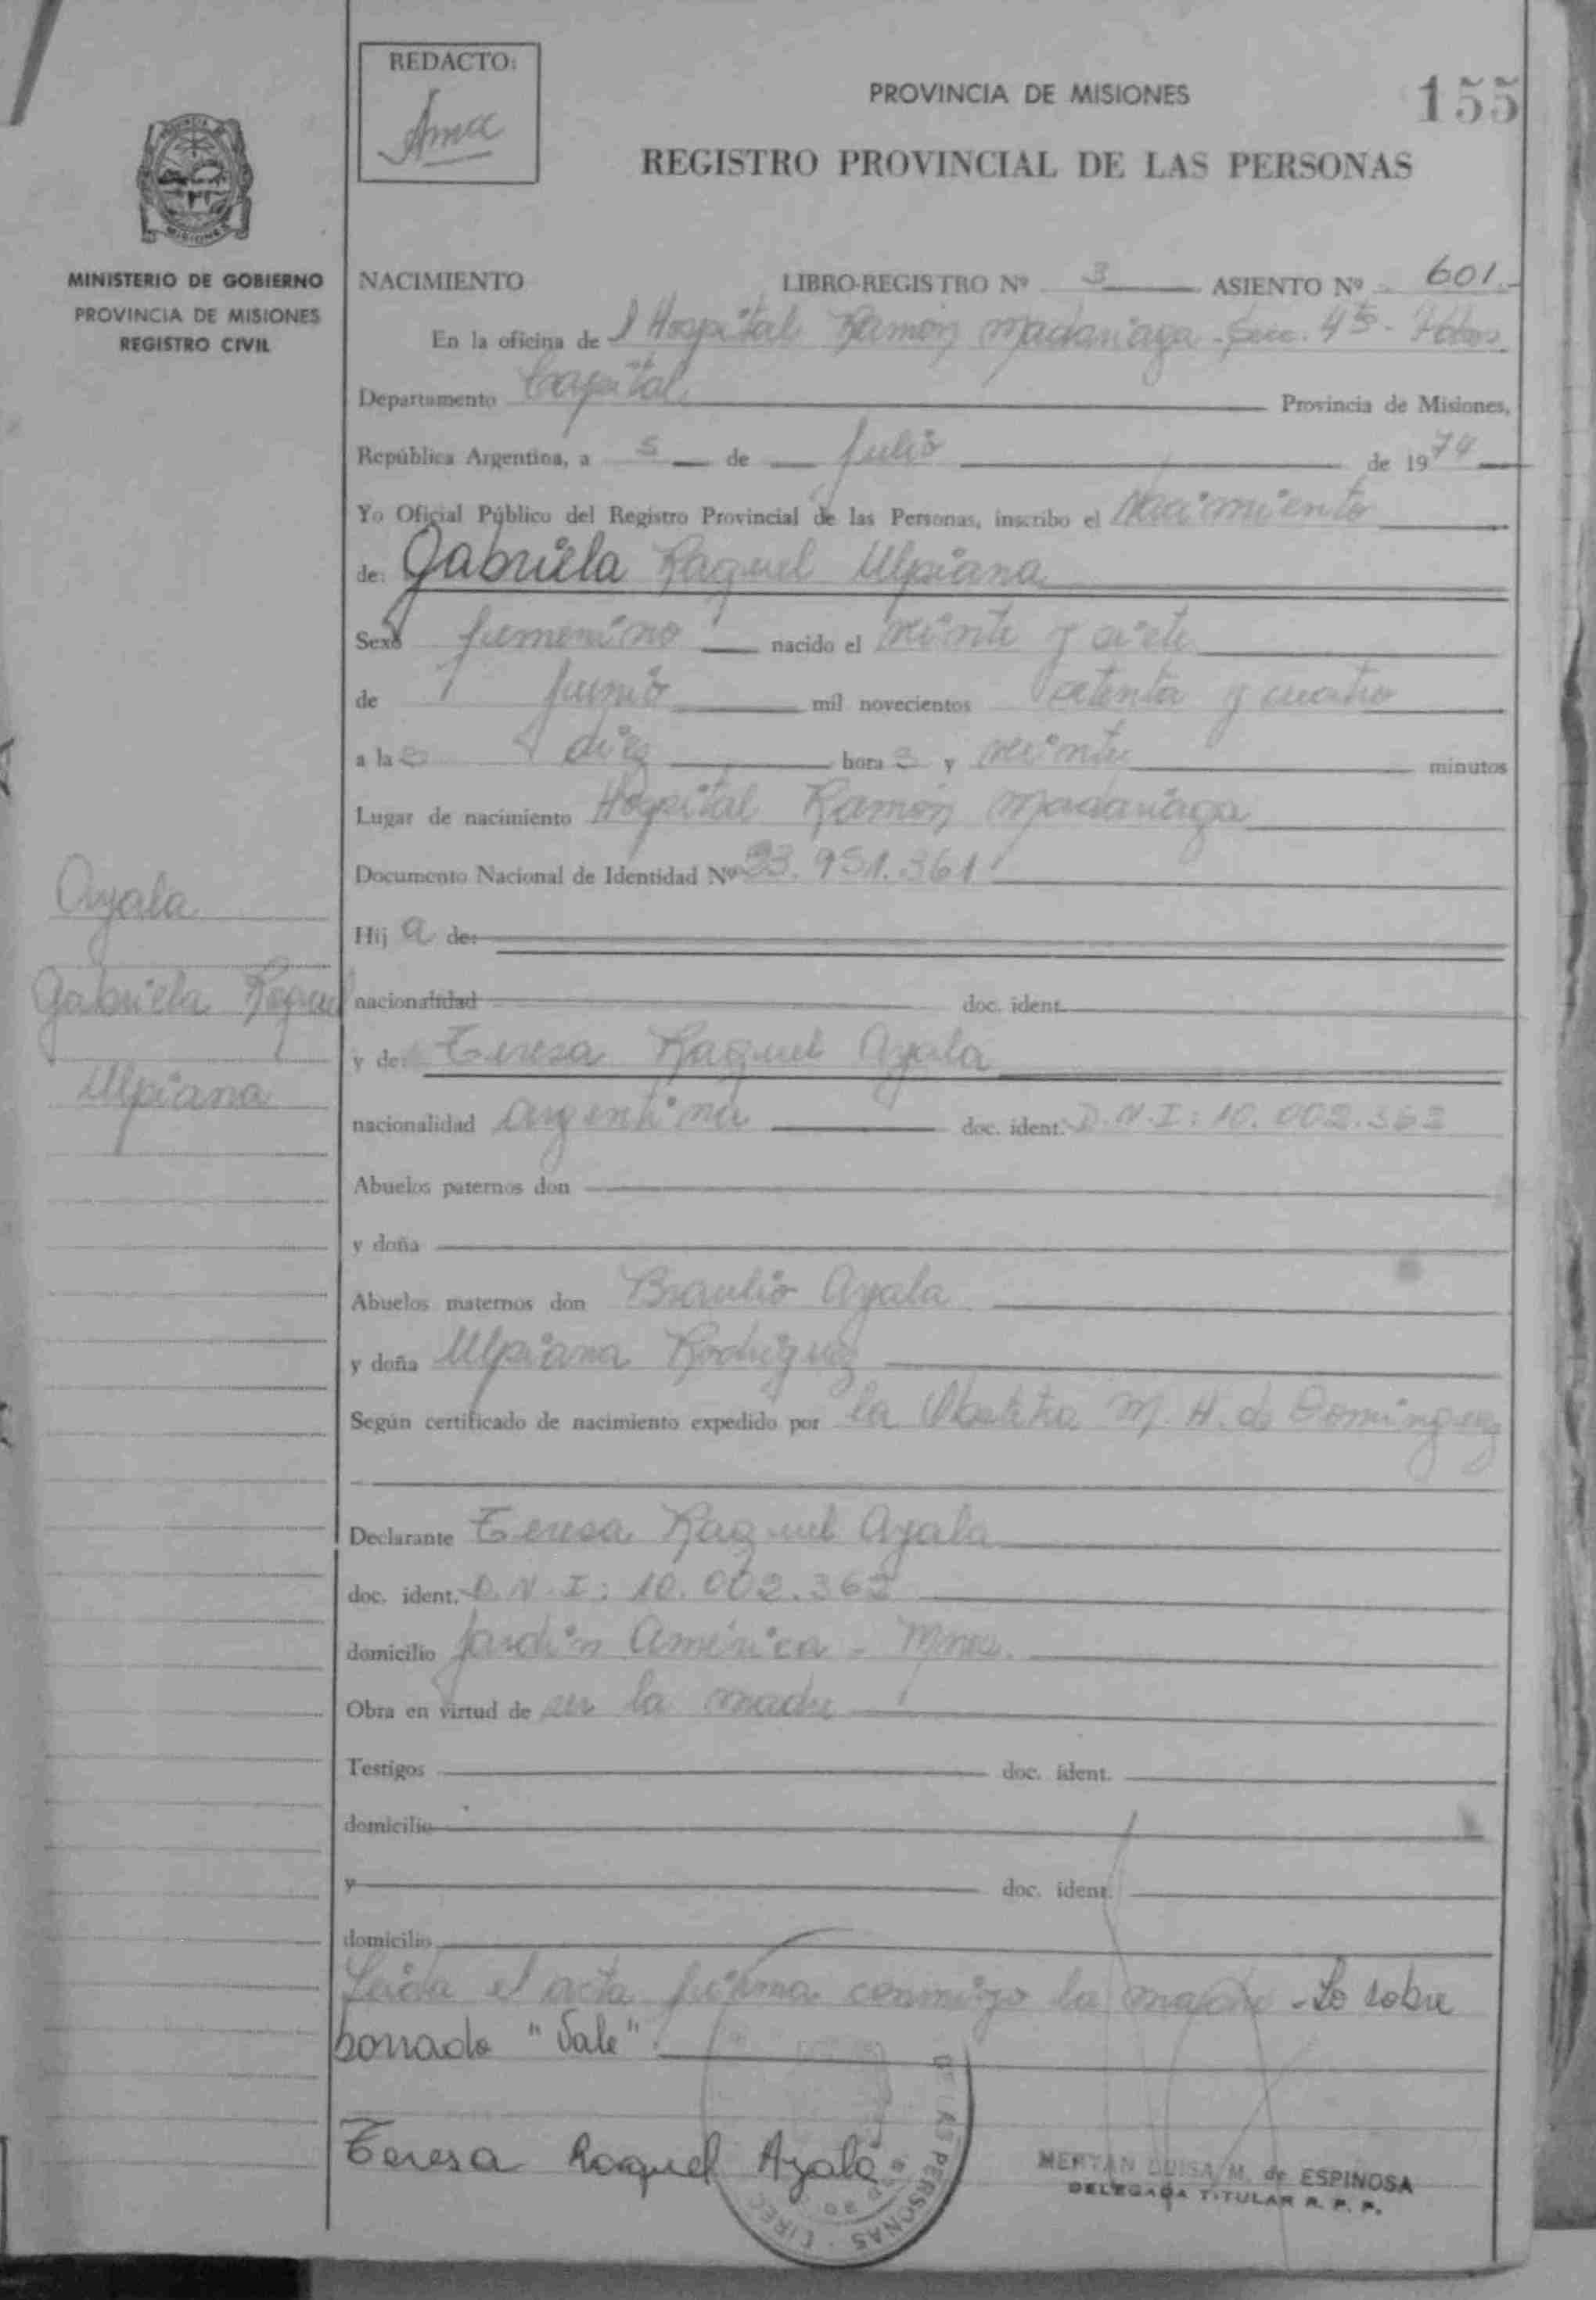 REDACTO:
PROVINCIA DE MISIONES
155
REGISTRO PROVINCIAL DE LAS PERSONAS
MISIONES
MINISTERIO DE GOBIERNO
PROVINCIA DE MISIONES
REGISTRO CIVIL
NACIMIENTO LIBRO-REGISTRO Nº 3 ASIENTO Nº 601.
En la oficina de l Hospital Ramón Madariaga - Secc. 4ta -
Departamento Capital Provincia de Misiones,
República Argentina, a 5 de Julio de 1974
Yo Oficial Público del Registro Provincial de las Personas, inscribo el Nacimiento
de: Gabriela Raquel Ulpiana
Sexo femenino nacido el veinte y siete
de Junio mil novecientos setenta y cuatro
a las diez horas y veinte minutos
Lugar de nacimiento Hospital Ramón Madariaga
Documento Nacional de Identidad Nº 23.951.361
Hija de:
nacionalidad doc. ident.
y de: Teresa Raquel Ayala
nacionalidad argentina doc. ident. D.N.I: 10.002.362
Abuelos paternos don
y doña
Abuelos maternos don Braulio Ayala
y doña Ulpiana Rodriguez
Según certificado de nacimiento expedido por la Obstetra M. H. de Dominguez
Declarante Teresa Raquel Ayala
doc. ident. D.N.I: 10.002.362
domicilio Jardín América - Mnes.
Obra en virtud de ser la madre
Testigos doc. ident.
domicilio
y doc. ident.
domicilio
Leida el acta firma conmigo la madre - Lo sobre
borrado "Vale"
Teresa Raquel Ayala
LUISA M. de ESPINOSA
DELEGADA TITULAR R. P. P.
DE LAS PERSONAS
Ayala
Gabriela Raquel
Ulpiana